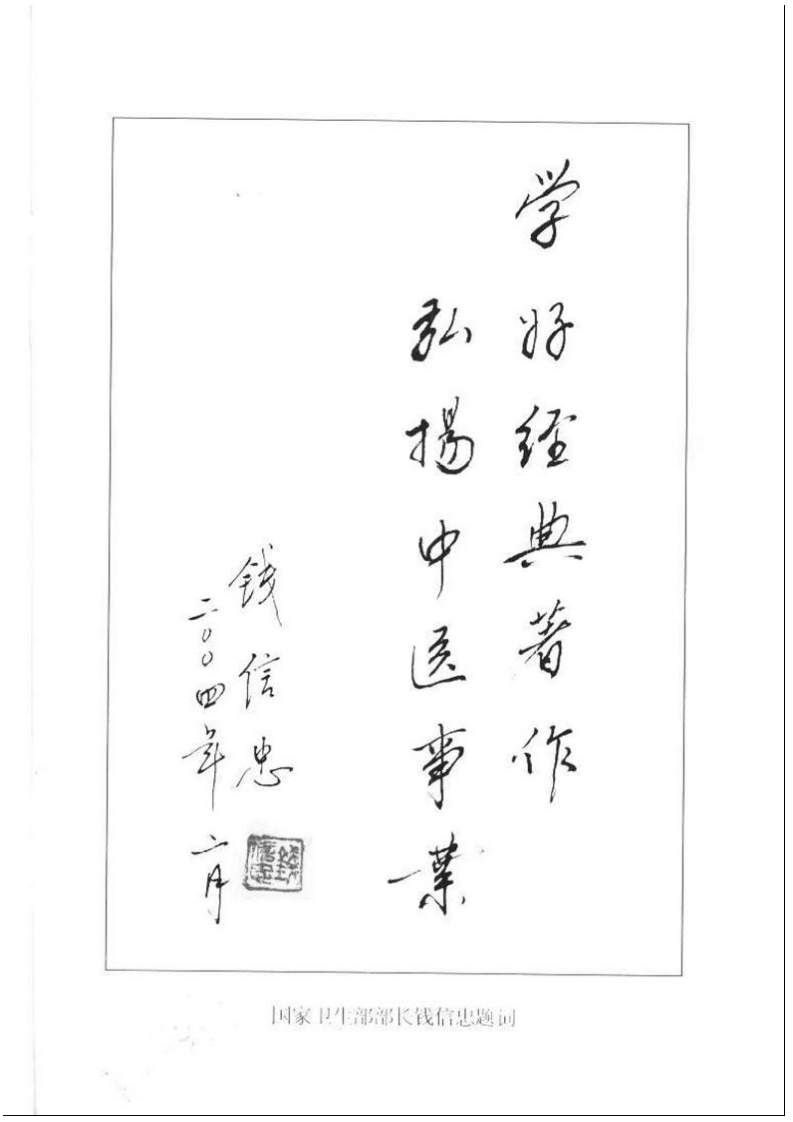 学好经典著作
弘揚中医事業
钱信忠
二〇〇四年月
国家卫生部部长钱信忠题词